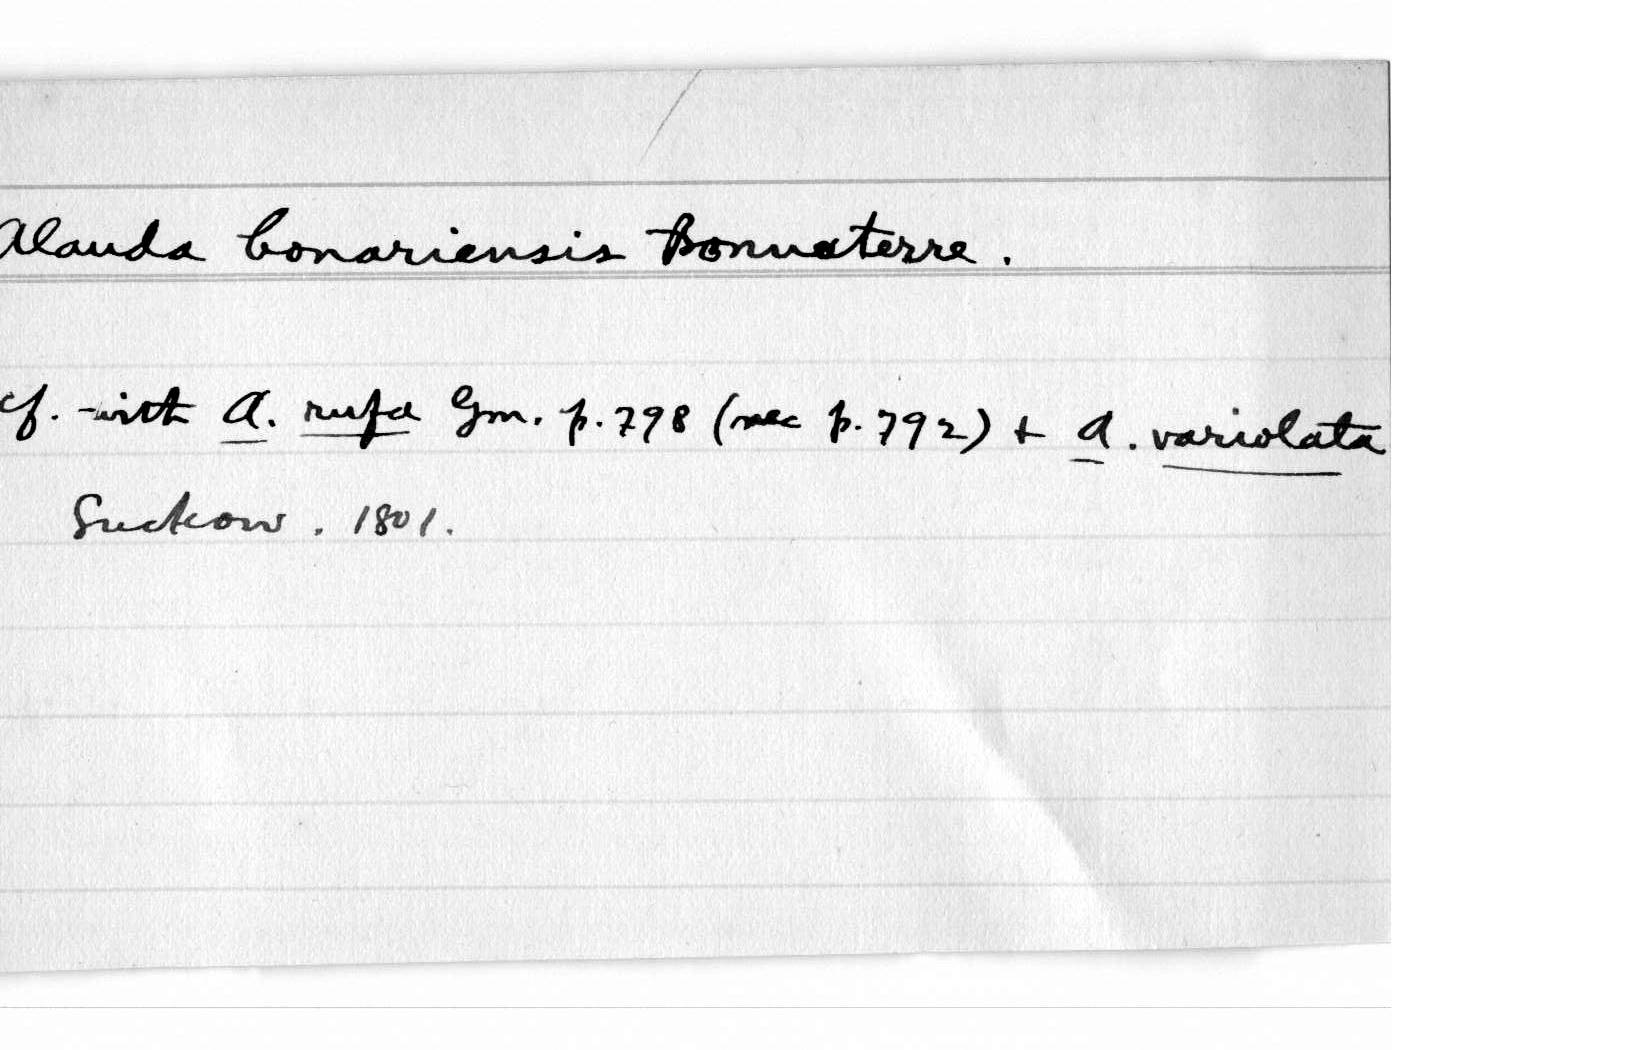 Alauda bonariensis Bonnaterre.
cf. with A. rufa Gm. p. 798 (nec p. 792) + A. variolata
Suckow. 1801.